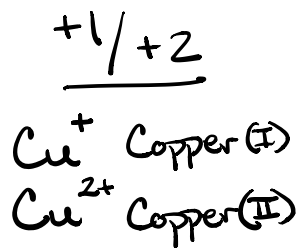 +1/+2
Cu⁺ Copper(I)
Cu²⁺ Copper(II)